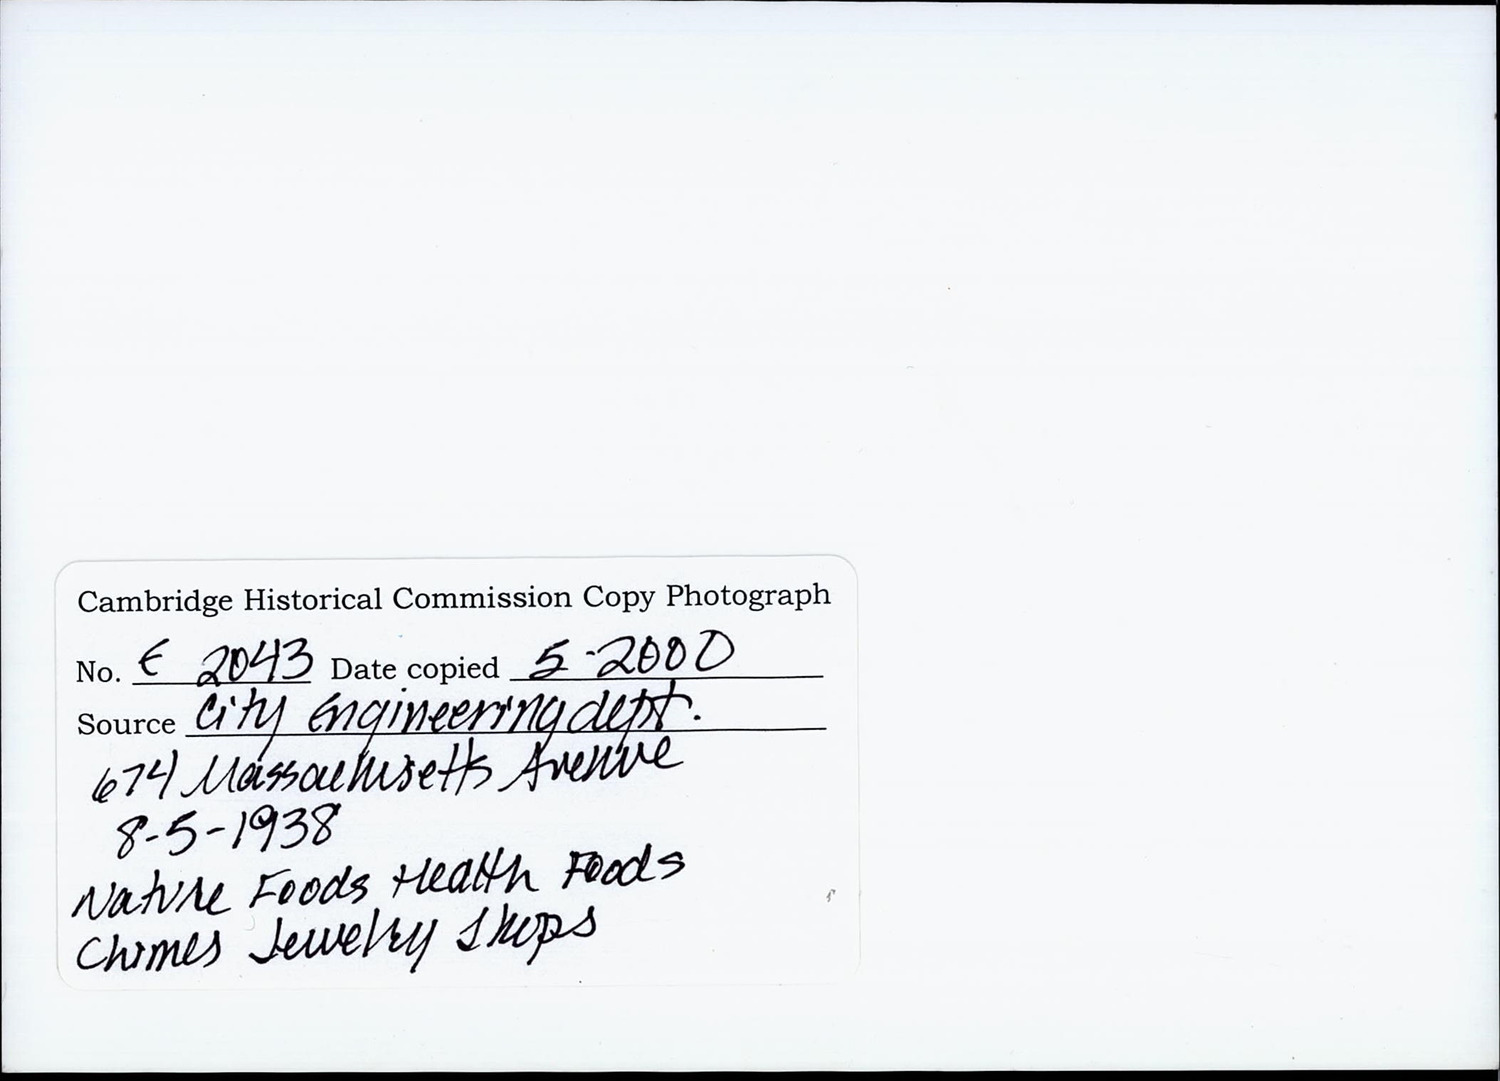 Cambridge Historical Commission Copy Photograph
No. E 2043 Date copied 5-2000
Source City Engineering dept.
674 Massachusetts Avenue
8-5-1938
Nature Foods Health Foods
Chimes Jewelry Shops